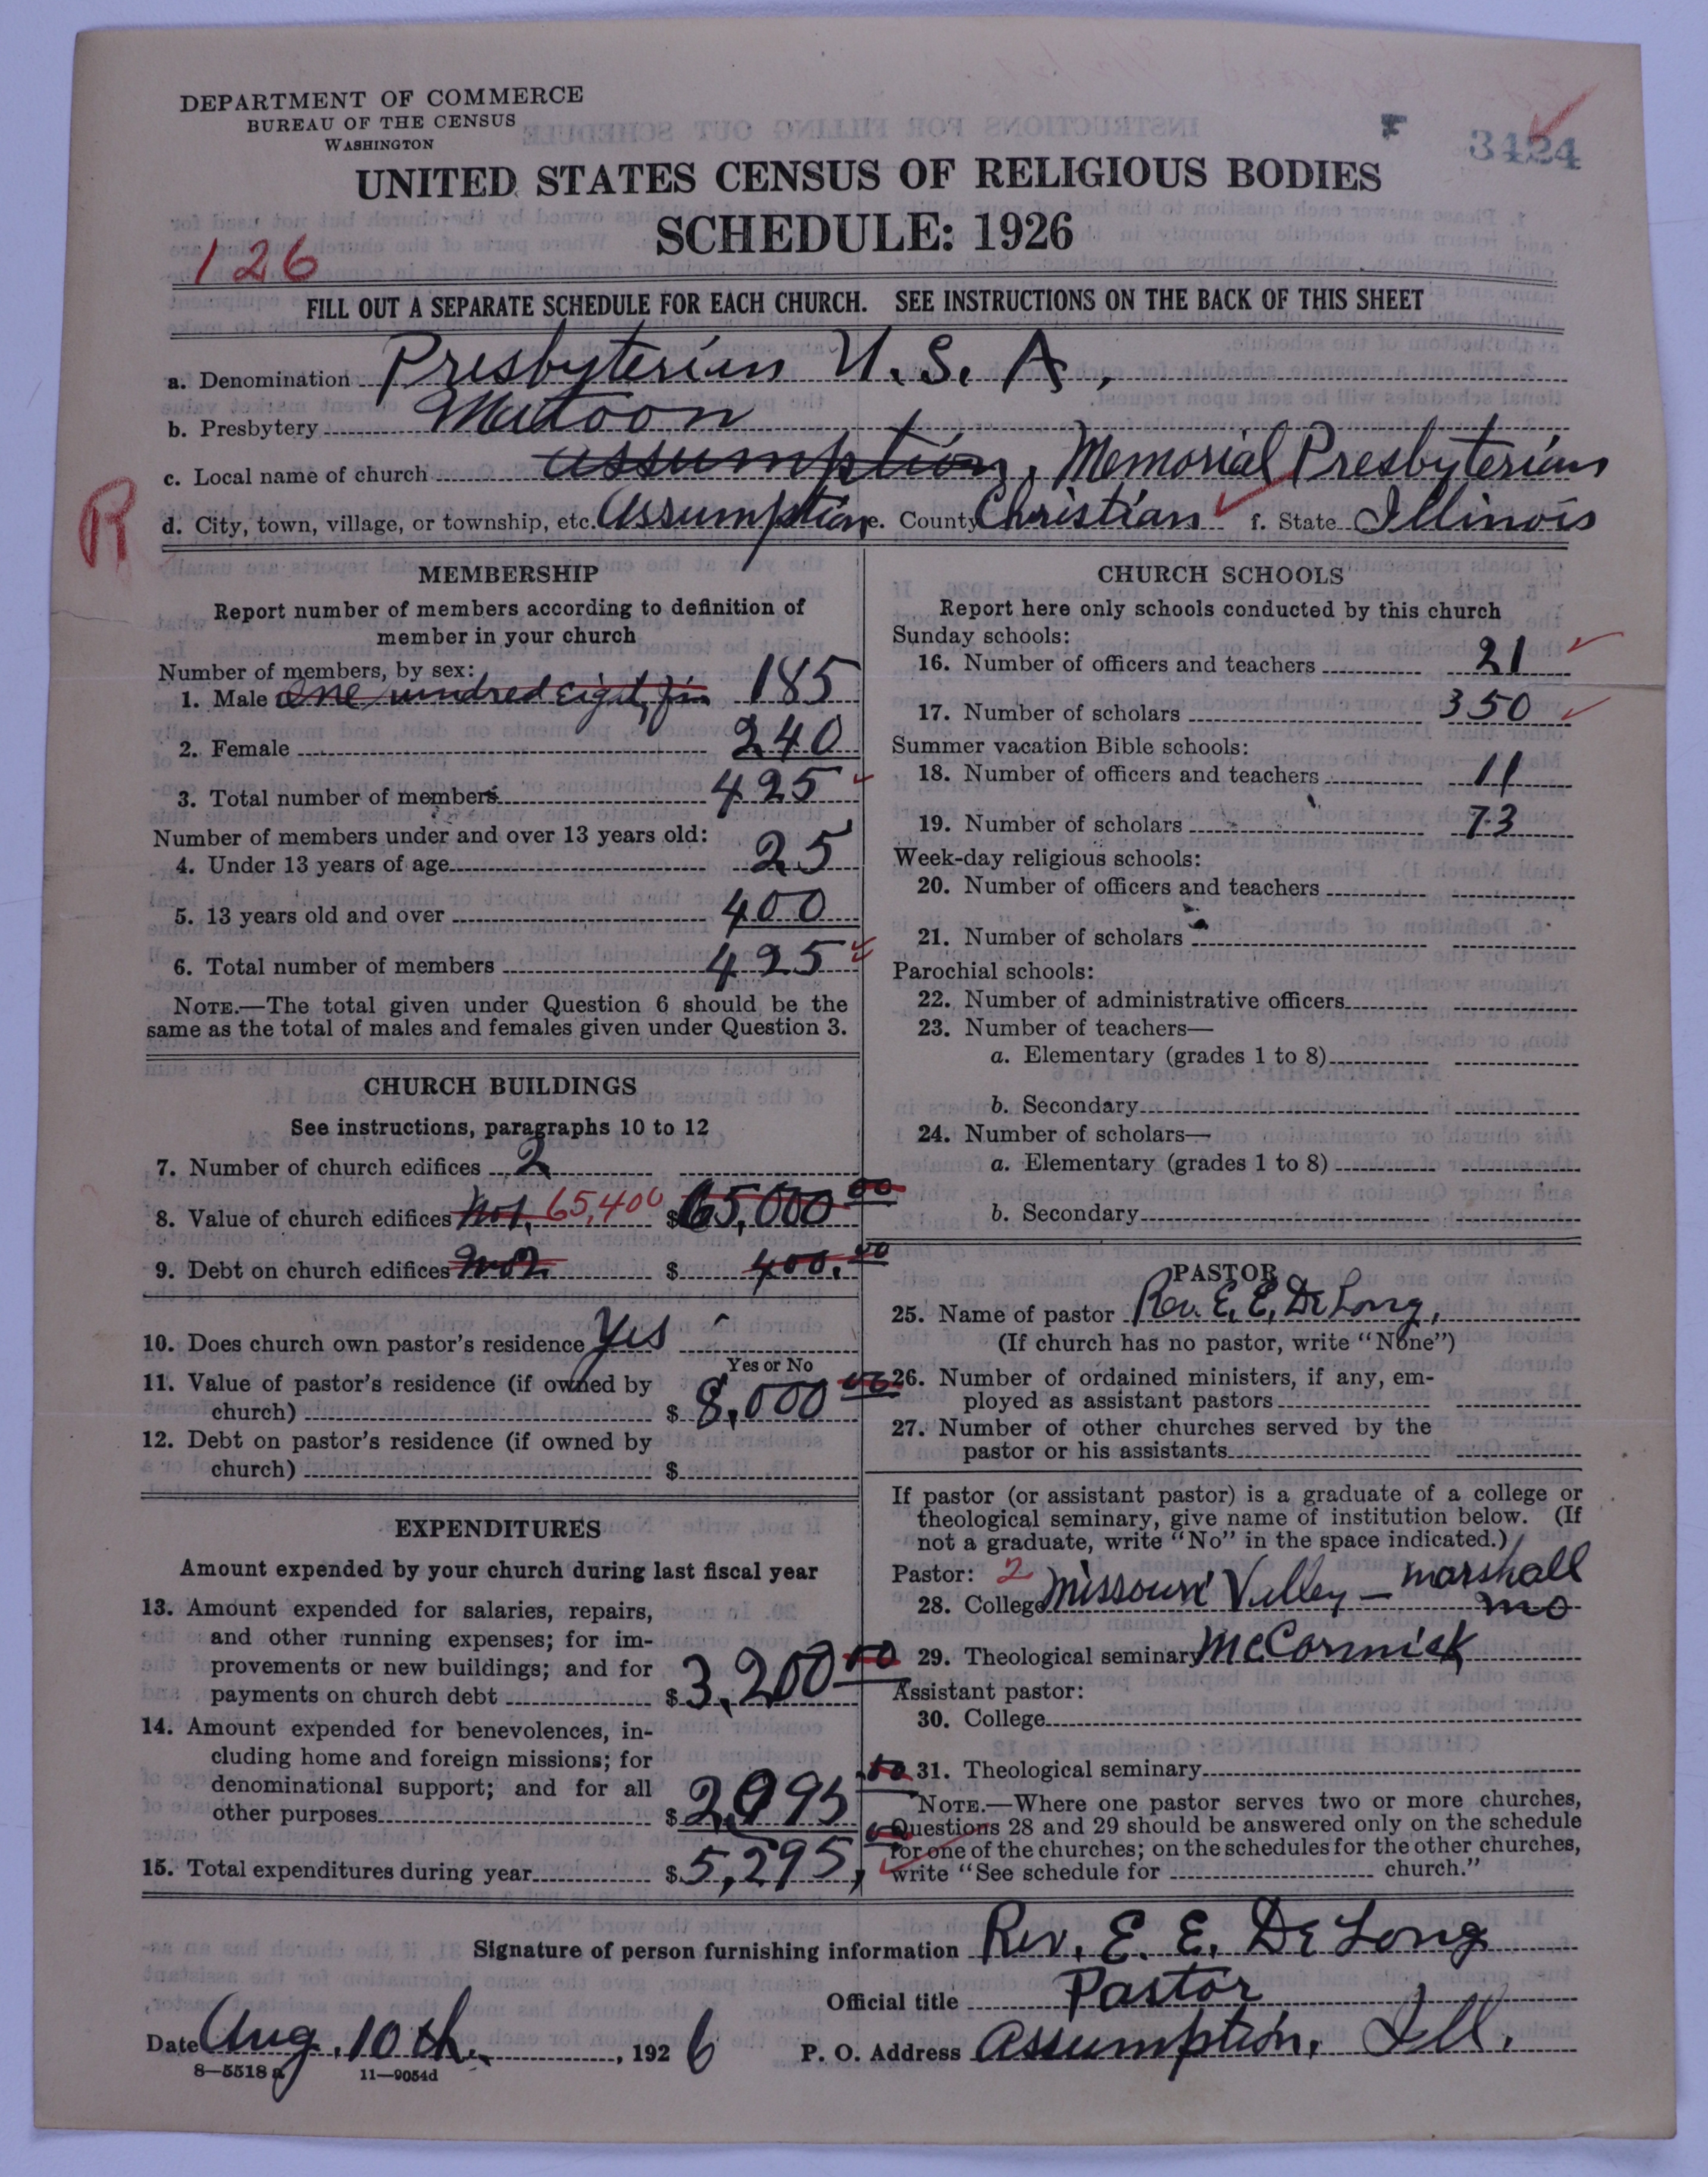 DEPARTMENT OF COMMERCE
BUREAU OF THE CENSUS
WASHINGTON
F 3424
UNITED STATES CENSUS OF RELIGIOUS BODIES
SCHEDULE: 1926
126
FILL OUT A SEPARATE SCHEDULE FOR EACH CHURCH. SEE INSTRUCTIONS ON THE BACK OF THIS SHEET
a. Denomination Presbyterian U.S.A.
b. Presbytery Mattoon
c. Local name of church Assumption, Memorial Presbyterian
R
d. City, town, village, or township, etc. Assumption e. County Christian f. State Illinois
MEMBERSHIP
Report number of members according to definition of
member in your church
Number of members, by sex:
1. Male one hundred eighty five 185
2. Female 240
3. Total number of members 425
Number of members under and over 13 years old:
4. Under 13 years of age 25
5. 13 years old and over 400
6. Total number of members 425
NOTE.—The total given under Question 6 should be the
same as the total of males and females given under Question 3.
CHURCH BUILDINGS
See instructions, paragraphs 10 to 12
7. Number of church edifices 2
8. Value of church edifices No1. 65,400 $65,000 00
9. Debt on church edifices No2. $ 400.00
10. Does church own pastor's residence Yes
Yes or No
11. Value of pastor's residence (if owned by
church) $ 8,000 00
12. Debt on pastor's residence (if owned by
church) $
EXPENDITURES
Amount expended by your church during last fiscal year
13. Amount expended for salaries, repairs,
and other running expenses; for im-
provements or new buildings; and for
payments on church debt $ 3,200 00
14. Amount expended for benevolences, in-
cluding home and foreign missions; for
denominational support; and for all
other purposes $ 2,095
15. Total expenditures during year $ 5,295,
CHURCH SCHOOLS
Report here only schools conducted by this church
Sunday schools:
16. Number of officers and teachers 21
17. Number of scholars 350
Summer vacation Bible schools:
18. Number of officers and teachers 11
19. Number of scholars 73
Week-day religious schools:
20. Number of officers and teachers
21. Number of scholars
Parochial schools:
22. Number of administrative officers
23. Number of teachers—
a. Elementary (grades 1 to 8)
b. Secondary
24. Number of scholars—
a. Elementary (grades 1 to 8)
b. Secondary
PASTOR
25. Name of pastor Rev. E. E. DeLong,
(If church has no pastor, write "None")
26. Number of ordained ministers, if any, em-
ployed as assistant pastors
27. Number of other churches served by the
pastor or his assistants
If pastor (or assistant pastor) is a graduate of a college or
theological seminary, give name of institution below. (If
not a graduate, write "No" in the space indicated.)
Pastor: 2
28. College Missouri Valley — Marshall
Mo
29. Theological seminary McCormick
Assistant pastor:
30. College
31. Theological seminary
NOTE.—Where one pastor serves two or more churches,
Questions 28 and 29 should be answered only on the schedule
for one of the churches; on the schedules for the other churches,
write "See schedule for church."
Signature of person furnishing information Rev. E. E. DeLong
Official title Pastor
Date Aug. 10th, 1926 P. O. Address Assumption, Ill.
8—5518 a 11—9054d